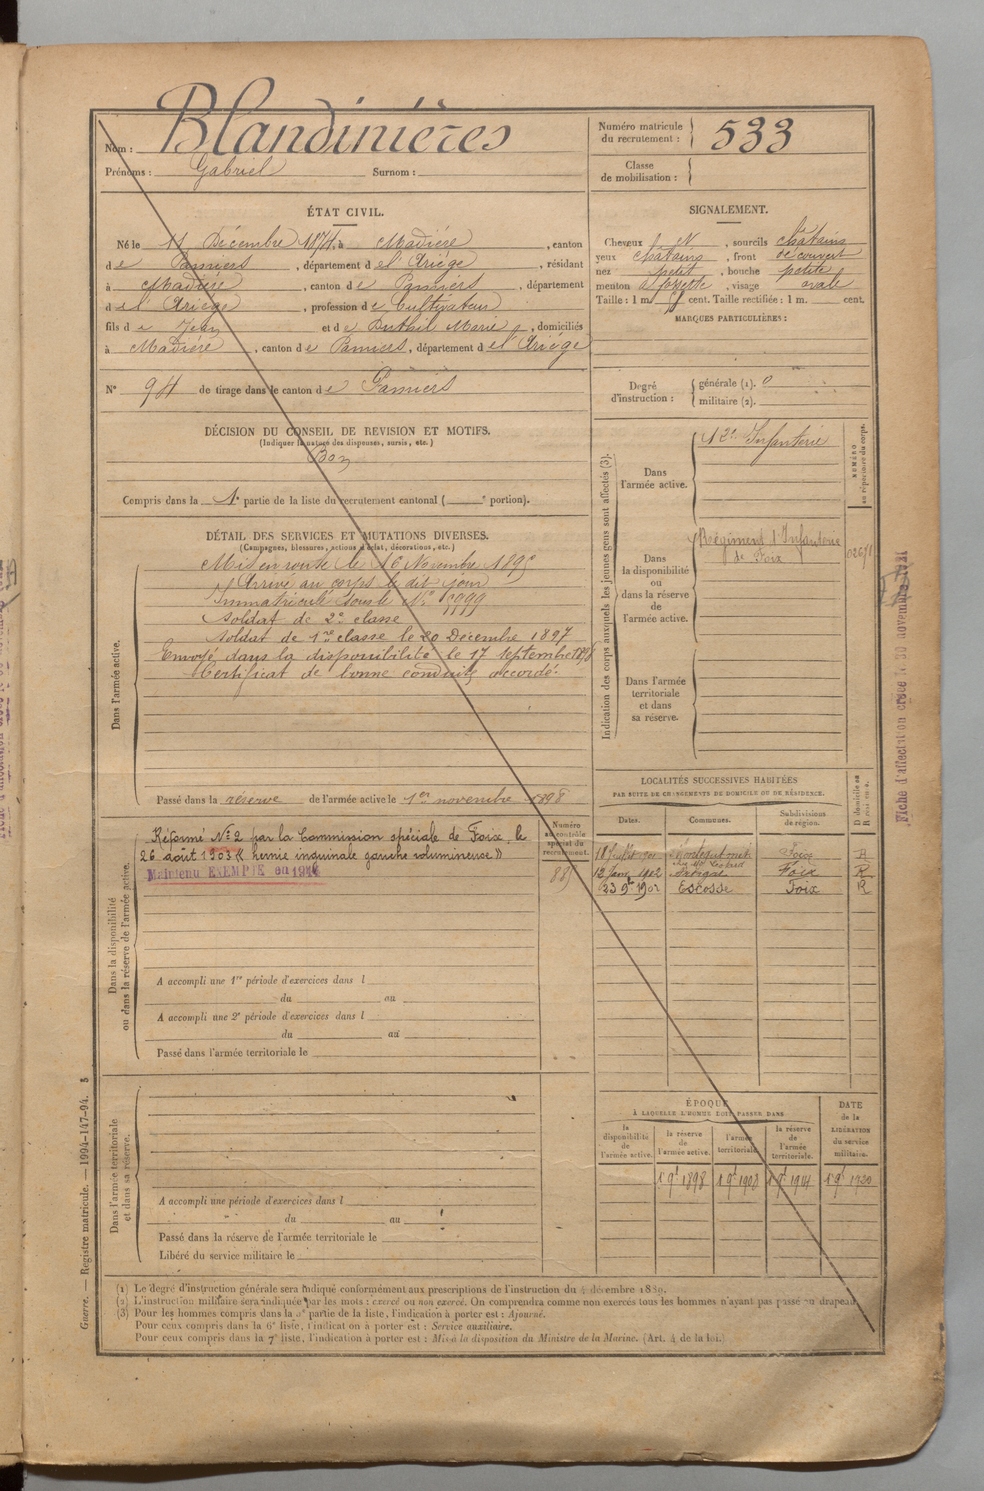 Nom : Blandinières
Prénoms : Gabriel Surnom :
Numéro matricule du recrutement : 533
Classe de mobilisation :
ÉTAT CIVIL.
Né le 11 Décembre 1874, à Madière, canton
de Pamiers, département de l'Ariège, résidant
à Madière, canton de Pamiers, département
de l'Ariège, profession de Cultivateur
fils de Jean et de Marie, domiciliés
à Madière, canton de Pamiers, département de l'Ariège
N° 94 de tirage dans le canton de Pamiers
DÉCISION DU CONSEIL DE REVISION ET MOTIFS.
(Indiquer la nature des dispenses, sursis, etc.)
Bon
Compris dans la 1e partie de la liste du recrutement cantonal ( e portion).
SIGNALEMENT.
Cheveux et , sourcils châtains
yeux châtains , front découvert
nez petit , bouche petite
menton à fossette , visage ovale
Taille : 1 m. cent. Taille rectifiée : 1 m. cent.
MARQUES PARTICULIÈRES :
Degré d'instruction : générale (1). 0
militaire (2).
DÉTAIL DES SERVICES ET MUTATIONS DIVERSES.
(Campagnes, blessures, actions d'éclat, décorations, etc.)
Dans l'armée active.
Mis en route le 16 Novembre 1895
Arrivé au corps le dit jour
Immatriculé sous le N°
Soldat de 2e classe
Soldat de 1re classe le 20 Décembre 1897
Envoyé dans la disponibilité le 17 septembre 1898
Certificat de bonne conduite accordé.
Passé dans la réserve de l'armée active le 1er novembre 1898
Indication des corps auxquels les jeunes gens sont affectés (3).
Dans l'armée active.
Infanterie
NUMÉRO au répertoire du corps.
Dans la disponibilité ou dans la réserve de l'armée active.
Régiment d'Infanterie
de Foix
Dans l'armée territoriale et dans sa réserve.
Fiche d'affectation créée le 30 novembre 1921
Dans la disponibilité ou dans la réserve de l'armée active.
Numéro au contrôle spécial du recrutement.
Réformé N° 2 par la Commission spéciale de Foix le
26 août 1903 « hernie inguinale gauche volumineuse »
Maintenu EXEMPTÉ en 1914
A accompli une 1re période d'exercices dans l
du au
A accompli une 2e période d'exercices dans l
du au
Passé dans l'armée territoriale le
LOCALITÉS SUCCESSIVES HABITÉES
PAR SUITE DE CHANGEMENTS DE DOMICILE OU DE RÉSIDENCE.
Dates. Communes. Subdivisions de région. D domicile ou R résidence.
Foix R
12 Janv. 1902 Foix R
23 9bre 1902 Escosse Foix R
Dans l'armée territoriale et dans sa réserve.
A accompli une période d'exercices dans l
du au
Passé dans la réserve de l'armée territoriale le
Libéré du service militaire le
ÉPOQUE
À LAQUELLE L'HOMME DOIT PASSER DANS
la disponibilité de l'armée active. la réserve de l'armée active. l'armée territoriale. la réserve de l'armée territoriale. DATE de la LIBÉRATION du service militaire.
1 9bre 1898 1 9bre 1908 1 9bre 1914 1 9bre 1920
Guerre. — Registre matricule. — 1994-147-94.
(1) Le degré d'instruction générale sera indiqué conformément aux prescriptions de l'instruction du 4 décembre 1889.
(2) L'instruction militaire sera indiquée par les mots : exercé ou non exercé. On comprendra comme non exercés tous les hommes n'ayant pas passé au drapeau.
(3) Pour les hommes compris dans la 5e partie de la liste, l'indication à porter est : Ajourné.
Pour ceux compris dans la 6e liste, l'indication à porter est : Service auxiliaire.
Pour ceux compris dans la 7e liste, l'indication à porter est : Mis à la disposition du Ministre de la Marine. (Art. 4 de la loi.)